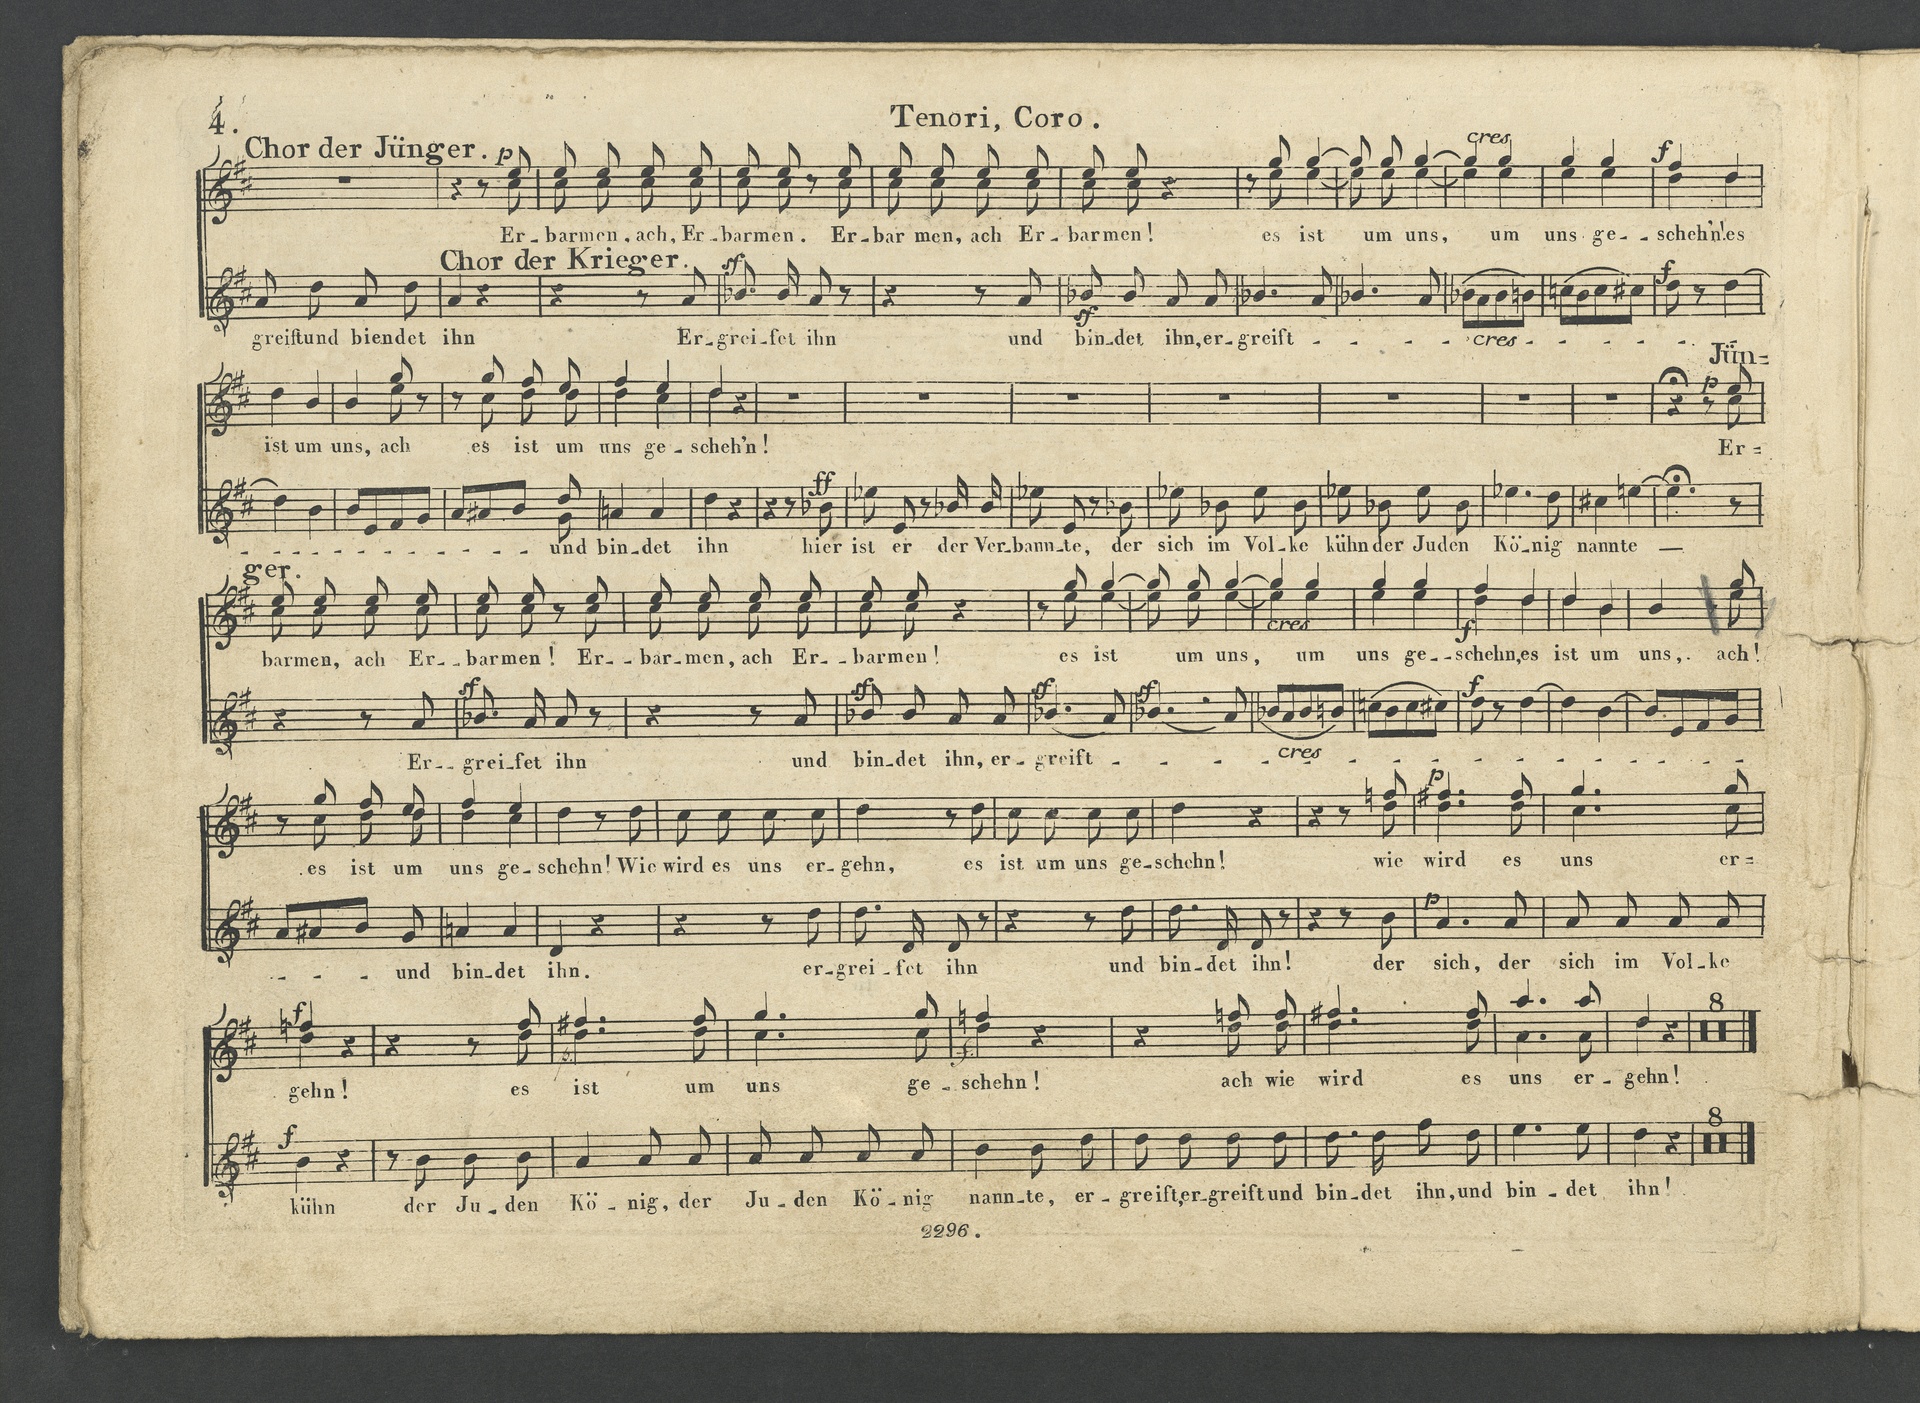 4.
Tenori, Coro.
Chor der Jünger. p cres f
Er-barmen, ach, Er-barmen. Er-bar men, ach Er-barmen! es ist um uns, um uns ge--scheh'n! es
Chor der Krieger. sf sf f
greift und biendet ihn Er-grei-fet ihn und bin-det ihn, er-greift - - - - cres - - - - - -
Jün=
p
ist um uns, ach es ist um uns ge-scheh'n! Er=
ff
- - - - - - - - - - und bin-det ihn hier ist er der Ver-bann-te, der sich im Vol-ke kühn der Juden Kö-nig nannte —
ger.
cres f
barmen, ach Er--barmen! Er--bar-men, ach Er--barmen! es ist um uns, um uns ge--schehn, es ist um uns, ach!
sf sf sf sf f
Er--grei-fet ihn und bin-det ihn, er-greift - - - - - cres - - - - - - - -
p
es ist um uns ge-schehn! Wie wird es uns er-gehn, es ist um uns ge-schehn! wie wird es uns er=
p
- - - und bin-det ihn. er-grei-fet ihn und bin-det ihn! der sich, der sich im Vol-ke
f p f 8
gehn! es ist um uns ge-schehn! ach wie wird es uns er-gehn!
f 8
kühn der Ju-den Kö-nig, der Ju-den Kö-nig nann-te, er-greift, er-greift und bin-det ihn, und bin-det ihn!
2296.